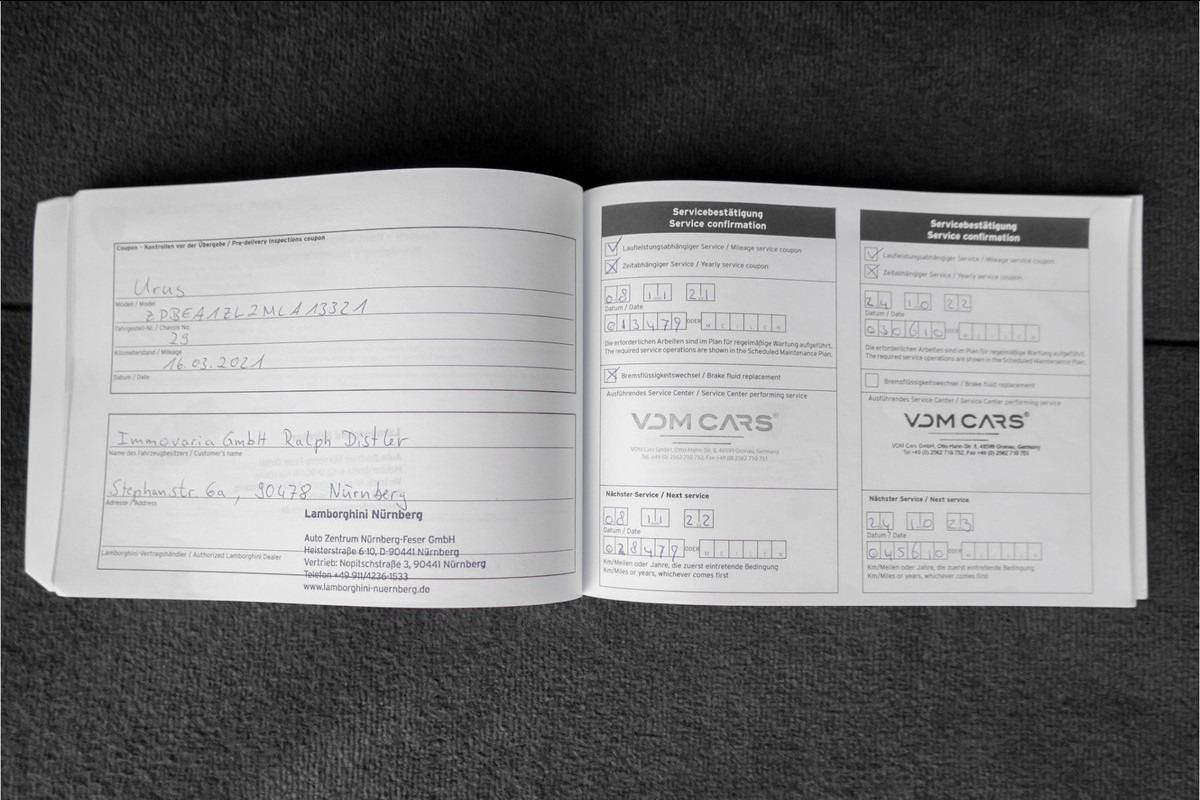 Coupon - Kontrollen vor der Übergabe / Pre-delivery inspections coupon
Urus
Modell / Model
ZPBEA1ZL2MLA13321
Fahrgestell-Nr. / Chassis No.
29
Kilometerstand / Mileage
16.03.2021
Datum / Date
Immovaria GmbH Ralph Distler
Name des Fahrzeugbesitzers / Customer's name
Stephanstr. 6a, 90478 Nürnberg
Adresse / Address
Lamborghini Nürnberg
Auto Zentrum Nürnberg-Feser GmbH
Heisterstraße 6-10, D-90441 Nürnberg
Lamborghini-Vertragshändler / Authorized Lamborghini Dealer
Vertrieb: Nopitschstraße 3, 90441 Nürnberg
Telefon +49 911/4236-1533
www.lamborghini-nuernberg.de
Servicebestätigung
Service confirmation
Laufleistungsabhängiger Service / Mileage service coupon
Zeitabhängiger Service / Yearly service coupon
08 11 21
Datum / Date
013479 ODER M E I L E N
Die erforderlichen Arbeiten sind im Plan für regelmäßige Wartung aufgeführt.
The required service operations are shown in the Scheduled Maintenance Plan.
Bremsflüssigkeitswechsel / Brake fluid replacement
Ausführendes Service Center / Service Center performing service
VDM CARS®
VDM Cars GmbH, Otto-Hahn-Str. 5, 48599 Gronau, Germany
Tel +49 (0) 2562 718 752, Fax +49 (0) 2562 710 751
Nächster Service / Next service
08 11 22
Datum / Date
028479 ODER M E I L E N
Km/Meilen oder Jahre, die zuerst eintretende Bedingung
Km/Miles or years, whichever comes first
Servicebestätigung
Service confirmation
Laufleistungsabhängiger Service / Mileage service coupon
Zeitabhängiger Service / Yearly service coupon
24 10 22
Datum / Date
030610 ODER M E I L E N
Die erforderlichen Arbeiten sind im Plan für regelmäßige Wartung aufgeführt.
The required service operations are shown in the Scheduled Maintenance Plan.
Bremsflüssigkeitswechsel / Brake fluid replacement
Ausführendes Service Center / Service Center performing service
VDM CARS®
VDM Cars GmbH, Otto-Hahn-Str. 5, 48599 Gronau, Germany
Tel +49 (0) 2562 718 752, Fax +49 (0) 2562 710 751
Nächster Service / Next service
24 10 23
Datum / Date
045610 ODER M E I L E N
Km/Meilen oder Jahre, die zuerst eintretende Bedingung
Km/Miles or years, whichever comes first